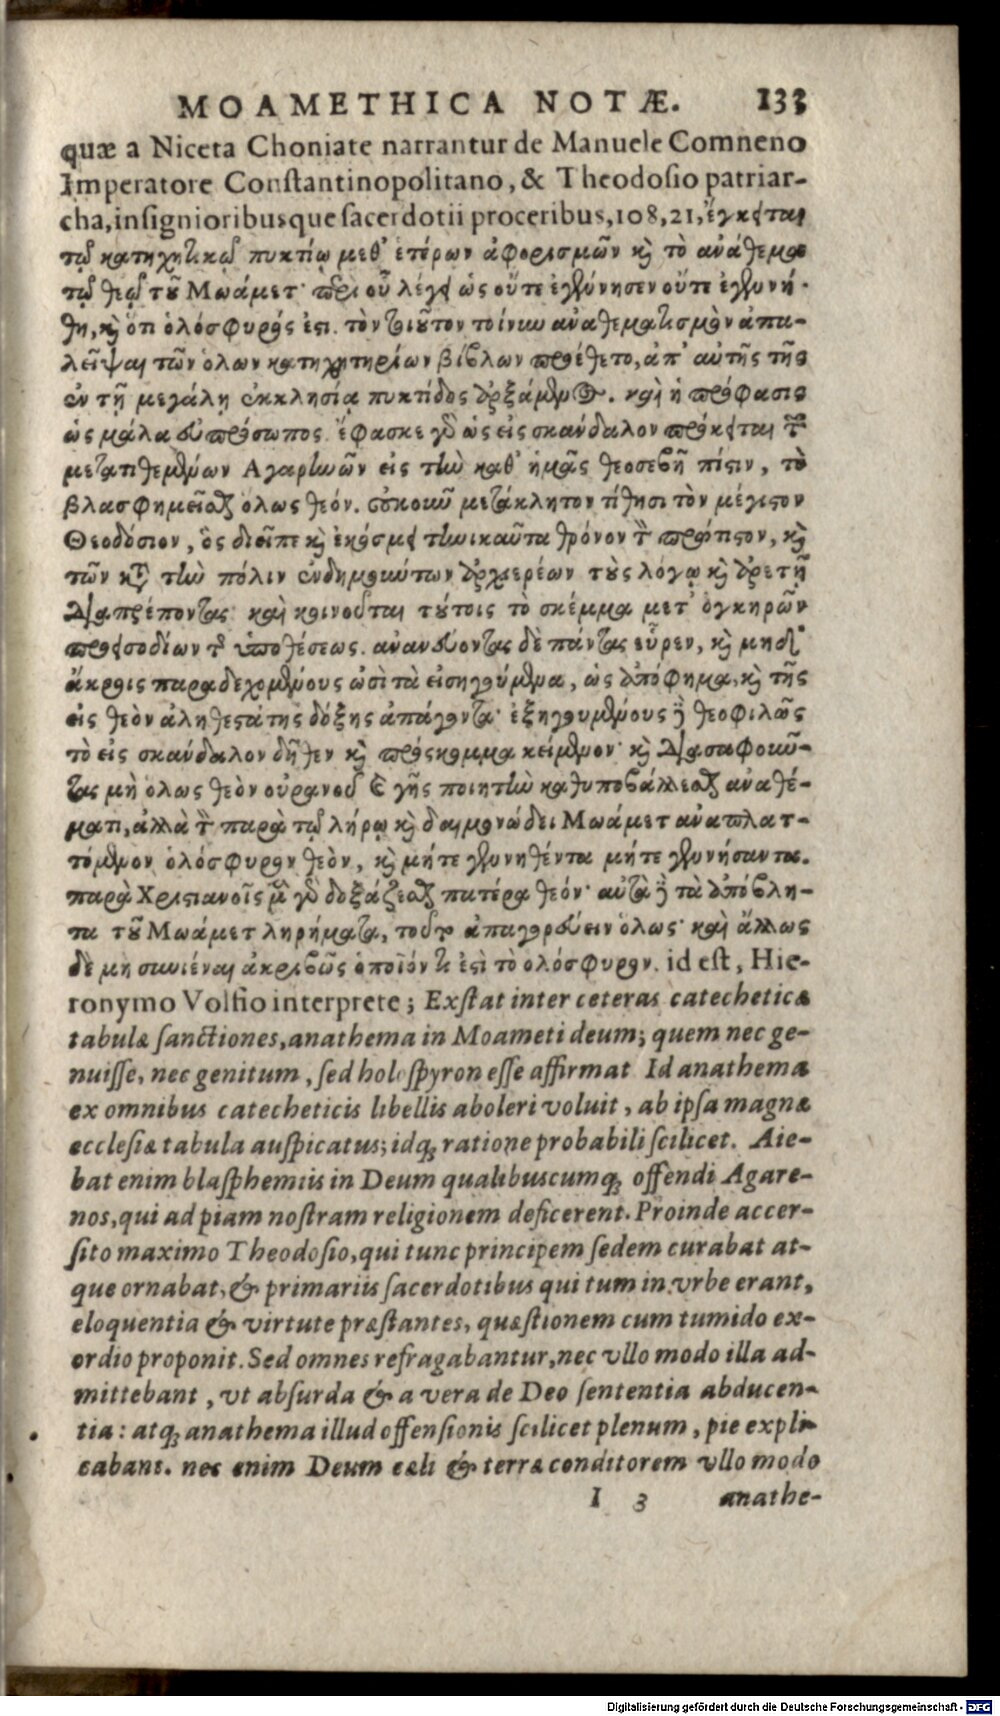 MOAMETHICA NOTÆ. 133
quæ a Niceta Choniate narrantur de Manuele Comneno
Imperatore Constantinopolitano, & Theodosio patriar-
cha, insignioribusque sacerdotii proceribus, 108, 21, ἔγκειται
τῷ κατηχητικῷ πυκτίῳ μεθ' ἑτέρων ἀφορισμῶν καὶ τὸ ἀνάθεμα
τῷ θεῷ τοῦ Μωάμετ· περὶ οὗ λέγει ὡς οὔτε ἐγέννησεν οὔτε ἐγεννή-
θη, καὶ ὅτι ὁλόσφυρός ἐστι. τὸν τοιοῦτον τοίνυν ἀναθεματισμὸν ἀπα-
λεῖψαι τῶν ὅλων κατηχητηρίων βίβλων προέθετο, ἀπ' αὐτῆς τῆς
ἐν τῇ μεγάλῃ ἐκκλησίᾳ πυκτίδος ἀρξάμενος. καὶ ἡ πρόφασις
ὡς μάλα εὐπρόσωπος. ἔφασκε γὰρ ὡς εἰς σκάνδαλον πρόκειται τῶν
μετατιθεμένων Αγαρηνῶν εἰς τὴν καθ' ἡμᾶς θεοσεβῆ πίστιν, τὸ
βλασφημεῖσθαι ὅλως θεόν. οὐκοῦν μετάκλητον τίθησι τὸν μέγιστον
Θεοδόσιον, ὃς διεῖπε καὶ ἐκόσμει τηνικαῦτα θρόνον τὸν πρώτιστον, καὶ
τῶν κατὰ τὴν πόλιν ἐνδημούντων ἀρχιερέων τοὺς λόγῳ καὶ ἀρετῇ
διαπρέποντας· καὶ κοινοῦται τούτοις τὸ σκέμμα μετ' ὀγκηρῶν
προεισοδίων τῆς ὑποθέσεως. ἀνανεύοντας δὲ πάντας εὗρεν, καὶ μηδ'
ἄκροις παραδεχομένους ὠσὶ τὰ εἰσηγούμενα, ὡς ἀπόφημα, καὶ τῆς
εἰς θεὸν ἀληθεστάτης δόξης ἀπάγοντα· ἐξηγουμένους δὲ θεοφιλῶς
τὸ εἰς σκάνδαλον δῆθεν καὶ πρόσκομμα κείμενον· καὶ διασαφοῦν-
τας μὴ ὅλως θεὸν οὐρανοῦ καὶ γῆς ποιητὴν καθυποβάλλεσθαι ἀναθέ-
ματι, ἀλλὰ τὸν παρὰ τῷ λήρῳ καὶ δαιμονώδει Μωάμετ ἀναπλατ-
τόμενον ὁλόσφυρον θεὸν, καὶ μήτε γεννηθέντα μήτε γεννήσαντα.
παρὰ Χριστιανοῖς μὲν γὰρ δοξάζεσθαι πατέρα θεόν· αὐτὰ δὲ τὰ ἀπόβλη-
τα τοῦ Μωάμετ ληρήματα, τοῦτο ἀπαγορεύειν ὅλως· καὶ ἄλλως
δὲ μὴ συνιέναι ἀκριβῶς ὁποῖόν τι ἐστὶ τὸ ὁλόσφυρον. id est, Hie-
ronymo Volfio interprete; Exstat inter ceteras catecheticæ
tabulæ sanctiones, anathema in Moameti deum; quem nec ge-
nuisse, nec genitum, sed holospyron esse affirmat Id anathema
ex omnibus catecheticis libellis aboleri voluit, ab ipsa magnæ
ecclesiæ tabula auspicatus; idq; ratione probabili scilicet. Aie-
bat enim blasphemiis in Deum qualibuscumq; offendi Agare-
nos, qui ad piam nostram religionem deficerent. Proinde accer-
sito maximo Theodosio, qui tunc principem sedem curabat at-
que ornabat, & primariis sacerdotibus qui tum in vrbe erant,
eloquentia & virtute præstantes, quæstionem cum tumido ex-
ordio proponit. Sed omnes refragabantur, nec vllo modo illa ad-
mittebant, vt absurda & a vera de Deo sententia abducen-
tia: atq; anathema illud offensionis scilicet plenum, pie expli-
cabant. nec enim Deum cæli & terræ conditorem vllo modo
I 3 anathe-
Digitalisierung gefördert durch die Deutsche Forschungsgemeinschaft - DFG